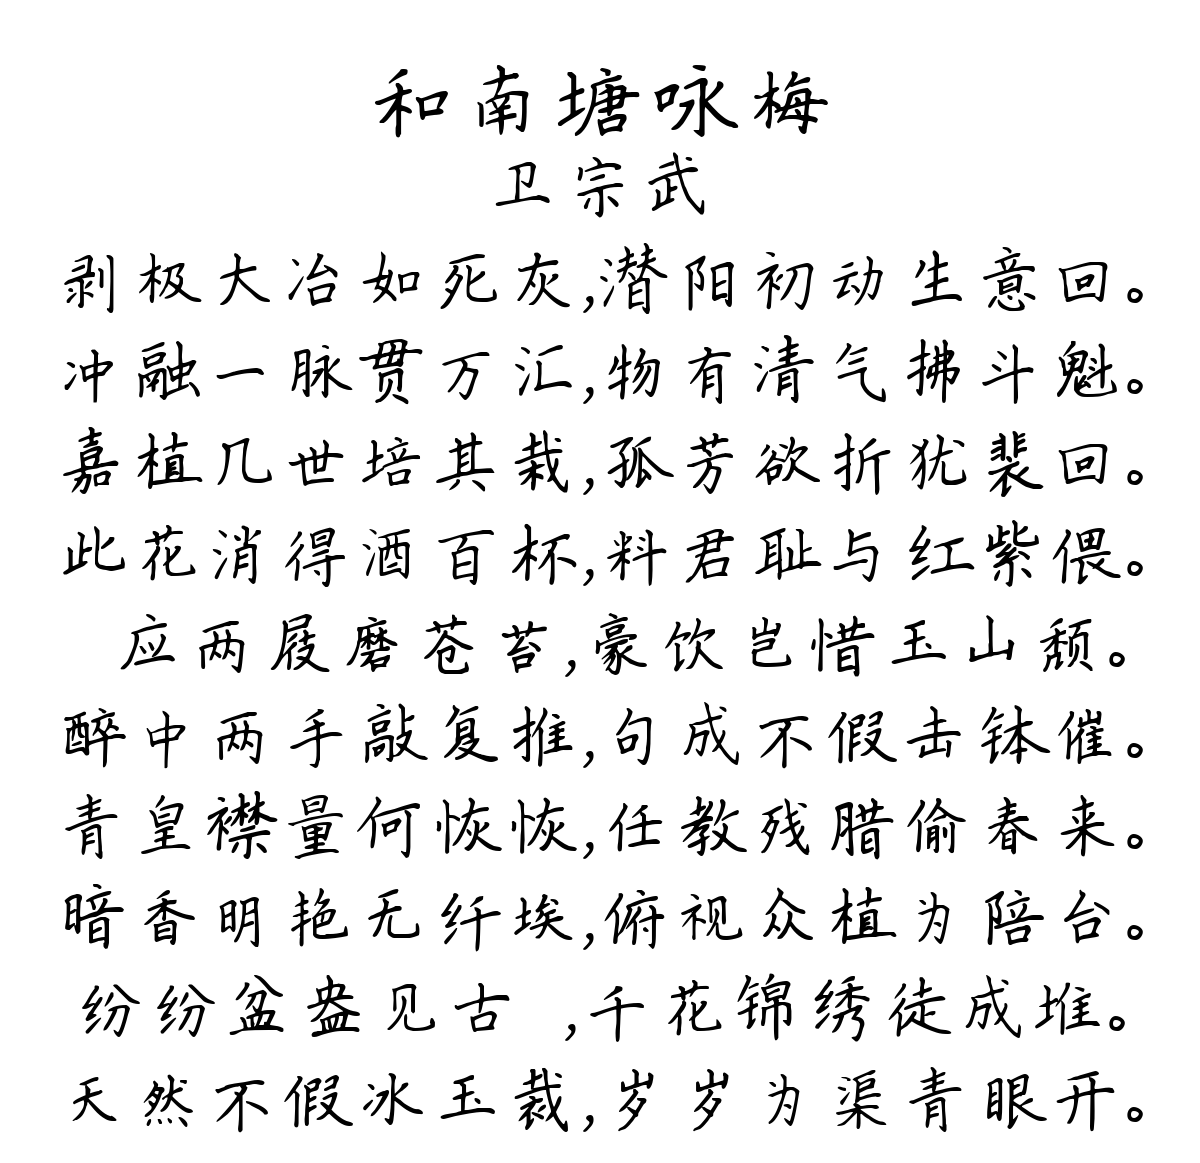 和南塘咏梅
卫宗武
剥极大冶如死灰,潜阳初动生意回。
冲融一脉贯万汇,物有清气拂斗魁。
嘉植几世培其栽,孤芳欲折犹裴回。
此花消得酒百杯,料君耻与红紫偎。
应两屐磨苍苔,豪饮岂惜玉山颓。
醉中两手敲复推,句成不假击钵催。
青皇襟量何恢恢,任教残腊偷春来。
暗香明艳无纤埃,俯视众植为陪台。
纷纷盆盎见古 ,千花锦绣徒成堆。
天然不假冰玉裁,岁岁为渠青眼开。